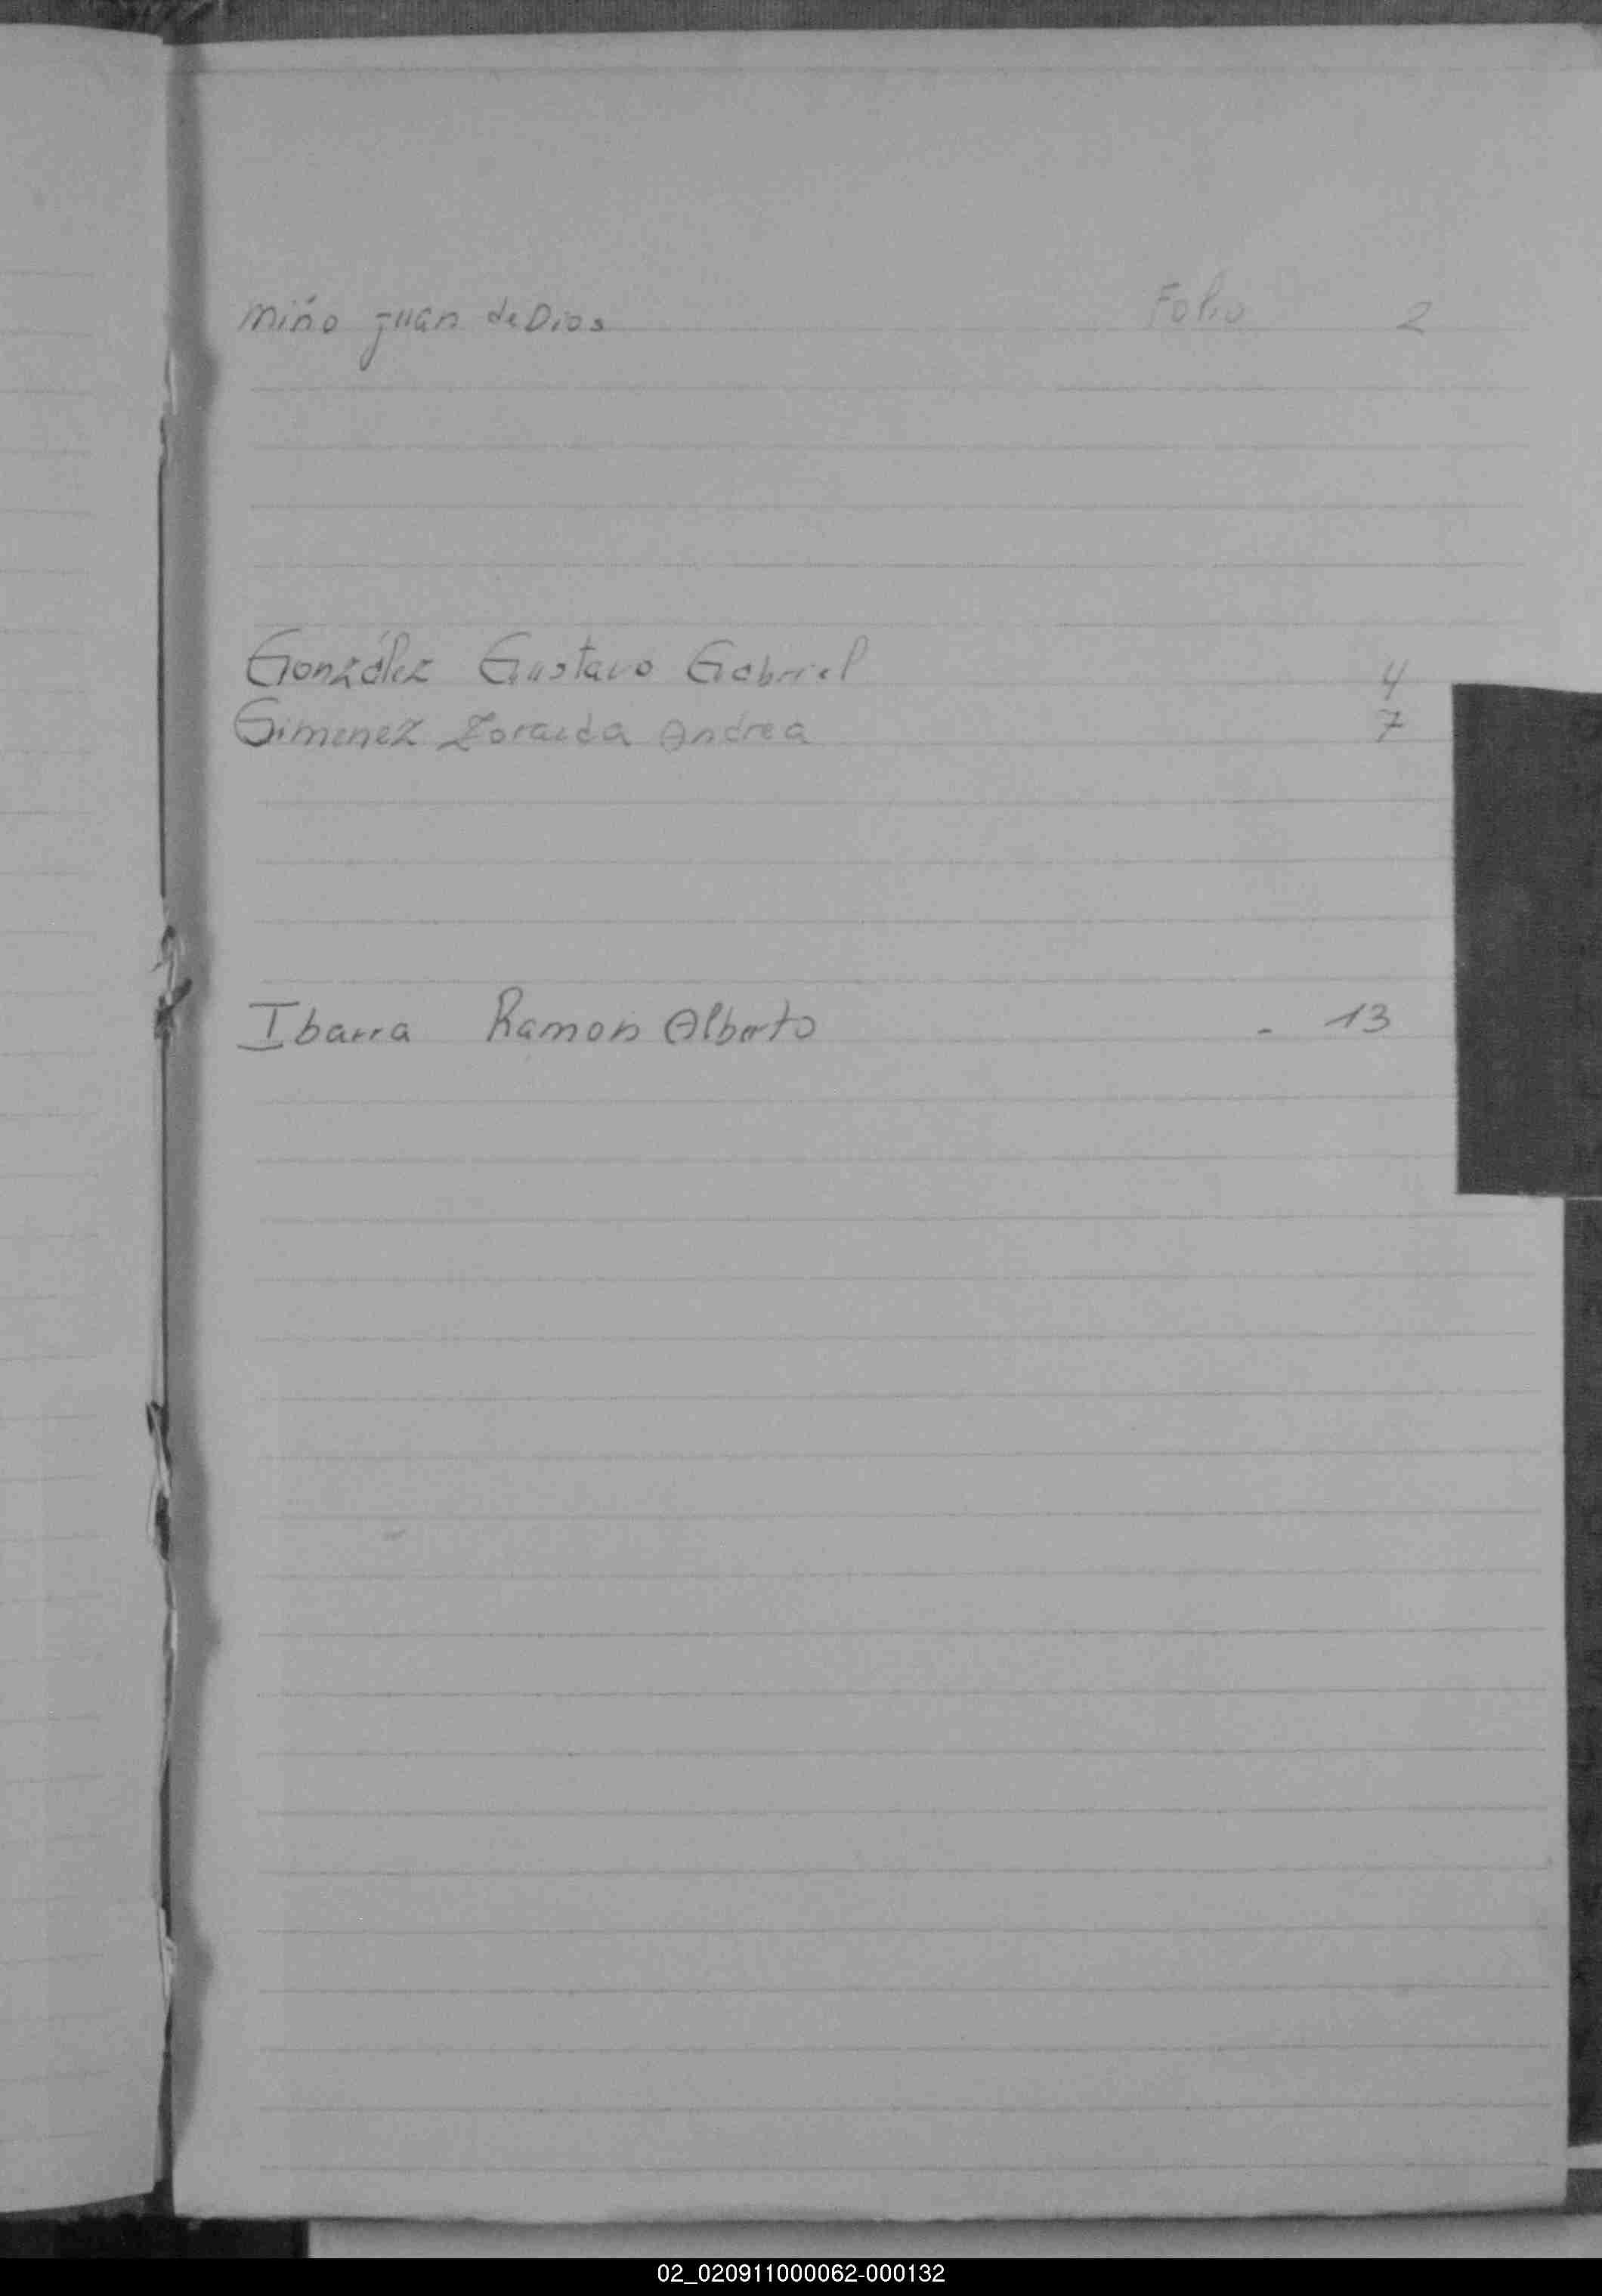 Miño Juan de Dios Folio 2
González Gustavo Gabriel 4
Gimenez Zoraida Andrea 7
Ibarra Ramon Alberto - 13
02_020911000062-000132